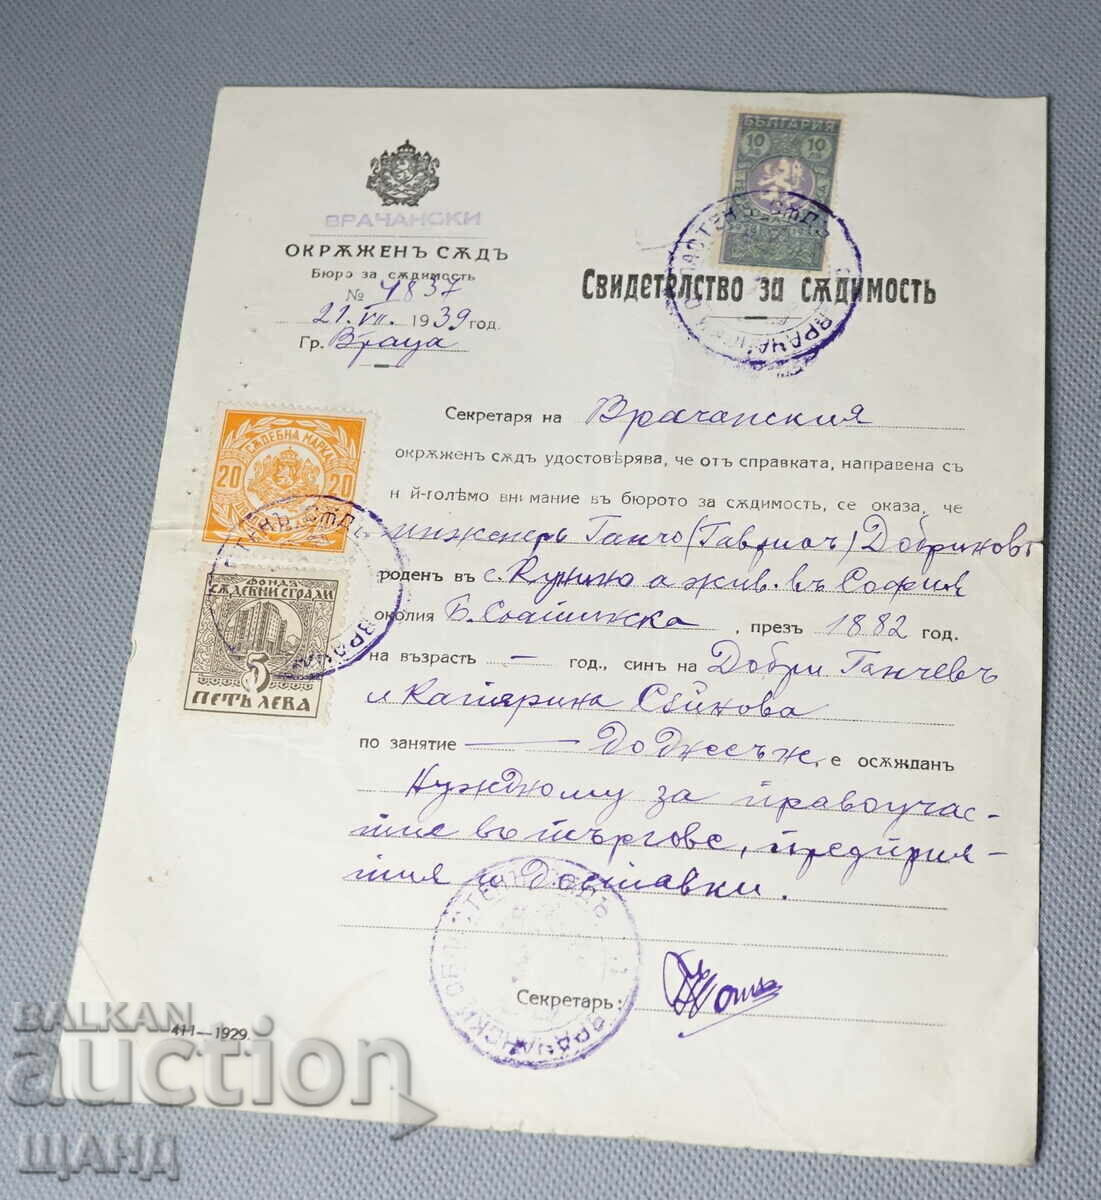 ВРАЧАНСКИ
ОКРѪЖЕНЪ СѪДЪ
Бюро за сѫдимость
№ 4837
21. VII. 1939 год.
Гр. Враца
БЪЛГАРИЯ
10 10
Свидетелство за сѫдимость
Секретаря на Врачанския
окрѫженъ сѫдъ удостовѣрява, че отъ справката, направена съ
н й-голѣмо внимание въ бюрото за сѫдимость, се оказа, че
инженеръ Ганчо (Гаврилъ) Добриновъ
роденъ въ с. Кунино а жив. въ София
околия Б. Слатинска, презъ 1882 год.
на възрасть — год., синъ на Добри Ганчевъ
и Катерина
по занятие — е осѫжданъ
Нуждному за правоучас-
тие въ търгове, предприя-
тия и доставки.
Секретарь:
СѪДЕБНА МАРКА
20 20
ФОНДЪ
СѪДЕБНИ СГРАДИ
5
ПЕТЬ ЛЕВА
411—1929.
BALKAN
auction
ЩАНД